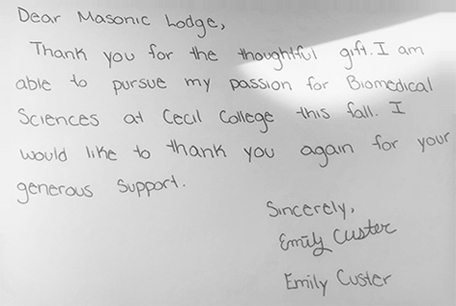 Dear Masonic Lodge,
Thank you for the thoughtful gift. I am
able to pursue my passion for Biomedical
Sciences at Cecil College this fall. I
would like to thank you again for your
generous support.
Sincerely,
Emily Custer
Emily Custer